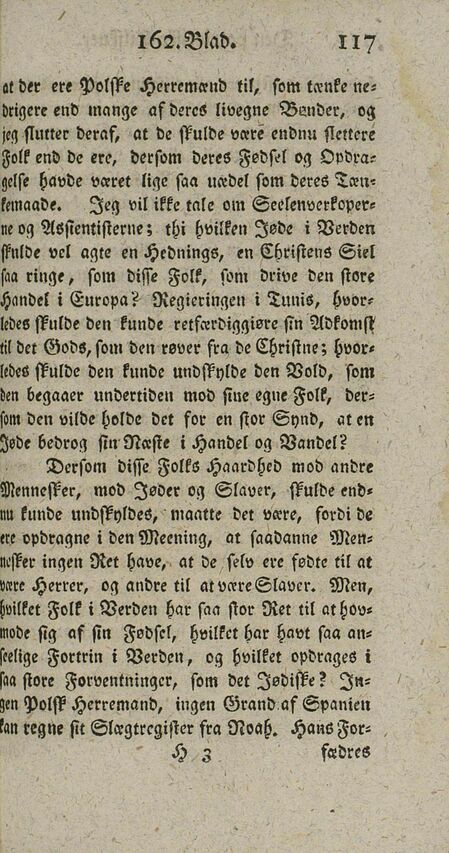 162. Blad. 117
at der ere Polske Herremænd til, som tænke ne-
drigere end mange af deres livegne Bønder, og
jeg slutter deraf, at de skulde være endnu slettere
Folk end de ere, dersom deres Fødsel og Opdra-
gelse havde været lige saa uædel som deres Tæn-
kemaade. Jeg vil ikke tale om Seelenverkoper-
ne og Assientisterne; thi hvilken Jøde i Verden
skulde vel agte en Hednings, en Christens Siel
saa ringe, som disse Folk, som drive den store
Handel i Europa? Regieringen i Tunis, hvor-
ledes skulde den kunde retfærdiggiøre sin Adkomst
til det Gods, som den røver fra de Christne; hvor-
ledes skulde den kunde undskylde den Vold, som
den begaaer undertiden mod sine egne Folk, der-
som den vilde holde det for en stor Synd, at en
Jøde bedrog sin Næste i Handel og Vandel?
Dersom disse Folks Haardhed mod andre
Mennesker, mod Jøder og Slaver, skulde end-
nu kunde undskyldes, maatte det være, fordi de
ere opdragne i den Meening, at saadanne Men-
nesker ingen Ret have, at de selv ere fødte til at
være Herrer, og andre til at være Slaver. Men,
hvilket Folk i Verden har saa stor Ret til at hov-
mode sig af sin Fødsel, hvilket har havt saa an-
seelige Fortrin i Verden, og hvilket opdrages i
saa store Forventninger, som det Jødiske? In-
gen Polsk Herremand, ingen Grand af Spanien
kan regne sit Slægtregister fra Noah. Hans For-
H 3 fædres